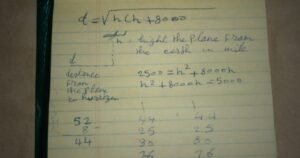 d = √h(h + 8000
h : hight the plane from
the earth in mile
d
distance
from
the plane
to horizon
2500 = h² + 8000h
h² + 8000h = 5000
52 44 44
8 25 25
44 30 30
36 36